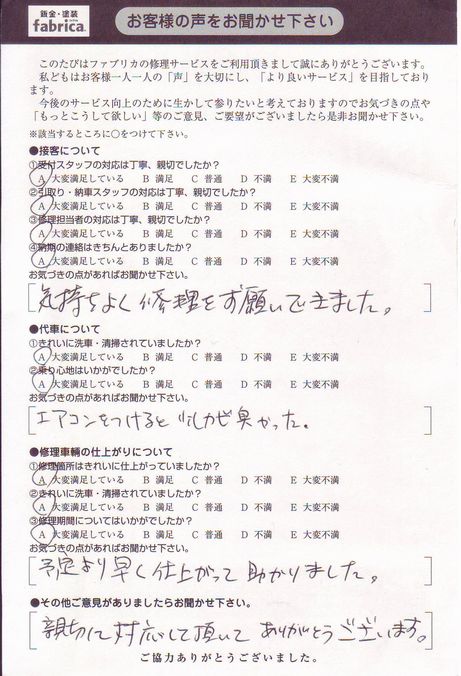 鈑金・塗装
fabrica.
お客様の声をお聞かせ下さい
このたびはファブリカの修理サービスをご利用頂きまして誠にありがとうございます。
私どもはお客様一人一人の「声」を大切にし、「より良いサービス」を目指しており
ます。
今後のサービス向上のために生かして参りたいと考えておりますのでお気づきの点や
「もっとこうして欲しい」等のご意見、ご要望がございましたら是非お聞かせ下さい。
※該当するところに○をつけて下さい。
●接客について
①受付スタッフの対応は丁寧、親切でしたか?
A 大変満足している B 満足 C 普通 D 不満 E 大変不満
②引取り・納車スタッフの対応は丁寧、親切でしたか?
A 大変満足している B 満足 C 普通 D 不満 E 大変不満
③修理担当者の対応は丁寧、親切でしたか?
A 大変満足している B 満足 C 普通 D 不満 E 大変不満
④納期の連絡はきちんとありましたか?
A 大変満足している B 満足 C 普通 D 不満 E 大変不満
お気づきの点があればお聞かせ下さい。
気持ちよく修理をお願いできました。
●代車について
①きれいに洗車・清掃されていましたか?
A 大変満足している B 満足 C 普通 D 不満 E 大変不満
②乗り心地はいかがでしたか?
A 大変満足している B 満足 C 普通 D 不満 E 大変不満
お気づきの点があればお聞かせ下さい。
エアコンをつけると少しカビ臭かった。
●修理車輌の仕上がりについて
①修理箇所はきれいに仕上がっていましたか?
A 大変満足している B 満足 C 普通 D 不満 E 大変不満
②きれいに洗車・清掃されていましたか?
A 大変満足している B 満足 C 普通 D 不満 E 大変不満
③修理期間についてはいかがでしたか?
A 大変満足している B 満足 C 普通 D 不満 E 大変不満
お気づきの点があればお聞かせ下さい。
予定より早く仕上がって助かりました。
●その他ご意見がありましたらお聞かせ下さい。
親切に対応して頂いてありがとうございます。
ご協力ありがとうございました。